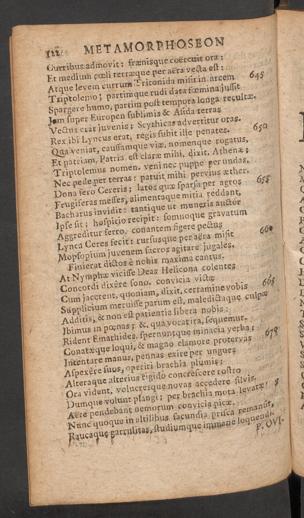 122 METAMORPHOSEON
Curribus admovit: frænisque coercuit ora:
Et medium cœli terræque per aera vecta est:
Atque levem currum Triconida misit in arcem 645
Triptolemo; partimque rudi data semina jussit
Spargere humo, partim post tempora longa recultæ.
Jam super Europen sublimis & Asida terras
Vectus erat juvenis: Scythicas advertitur oras.
Rex ibi Lyncus erat, regis subit ille penates. 650
Qua veniat, caussamque viæ, nomenque rogatus,
Et patriam, Patria est claræ mihi, dixit, Athenæ:
Triptolemus nomen. veni nec puppe per undas,
Nec pede per terras: patuit mihi pervius æther.
Dona fero Cereris; latos quæ sparsa per agros 655
Frugiferas messes, alimentaque mitia reddant,
Barbarus invidit: tantique ut muneris auctor
Ipse sit; hospitio recipit: somnoque gravatum
Aggreditur ferro, conantem figere pectus
Lynca Ceres fecit: rursusque per aera misit 660
Mopsopium juvenem sacros agitare jugales.
Finierat dictos è nobis maxima cantus.
At Nymphæ vicisse Deas Helicona colentes
Concordi dixère sono. convicia victæ
Cum jacerent, quoniam, dixit, certamine vobis 665
Supplicium meruisse parum est, maledictaque culpæ
Additis, & non est patientia libera nobis;
Ibimus in pœnas; &, qua vocat ira, sequemur.
Rident Emathides, spernuntque minacia verba:
Conatæque loqui, & magno clamore protervas 670
Intentare manus, pennas exire per ungues
Aspexère suos, operiri brachia plumis:
Alteraque alterius rigido concrescere rostro
Ora vident, volucresque novas accedere silvis.
Dumque volunt plangi; per brachia mota levatæ,
Aere pendebant nemorum convicia picæ.
Nunc quoque in alitibus facundia prisca remansit,
Raucaque garrulitas, studiumque immane loquendi.
P. OVI-